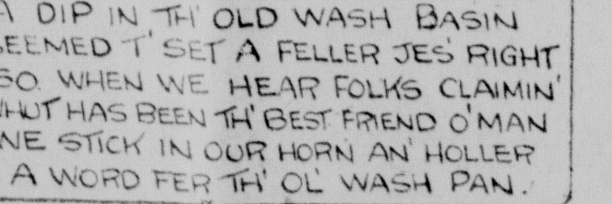 A DIP IN TH' OLD WASH BASIN
SEEMED T' SET A FELLER JES' RIGHT
SO WHEN WE HEAR FOLKS CLAIMIN'
WHUT HAS BEEN TH' BEST FRIEND O' MAN
WE STICK IN OUR HORN AN' HOLLER
A WORD FER TH' OL' WASH PAN.